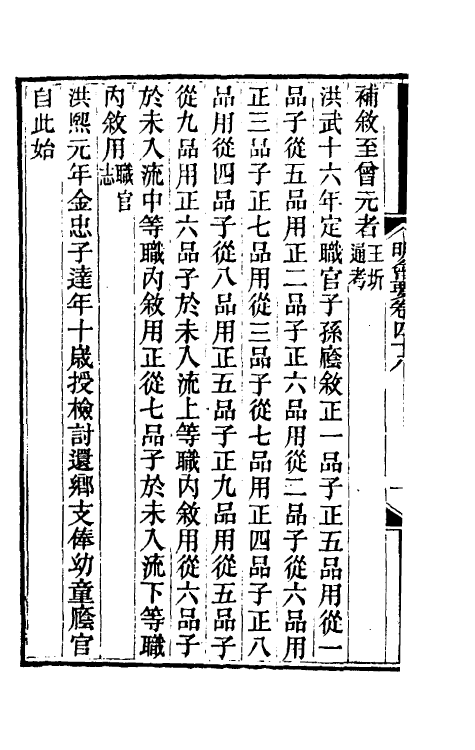 明會要卷四十八
補敘至曾元者王圻通考
洪武十六年定職官子孫廕敘正一品子正五品用從一
品子從五品用正二品子正六品用從二品子從六品用
正三品子正七品用從三品子從七品用正四品子正八
品用從四品子從八品用正五品子正九品用從五品子
從九品用正六品子於未入流上等職內敘用從六品子
於未入流中等職內敘用正從七品子於未入流下等職
內敘用職官志
洪熙元年金忠子達年十歲授檢討還鄉支俸幼童廕官
自此始